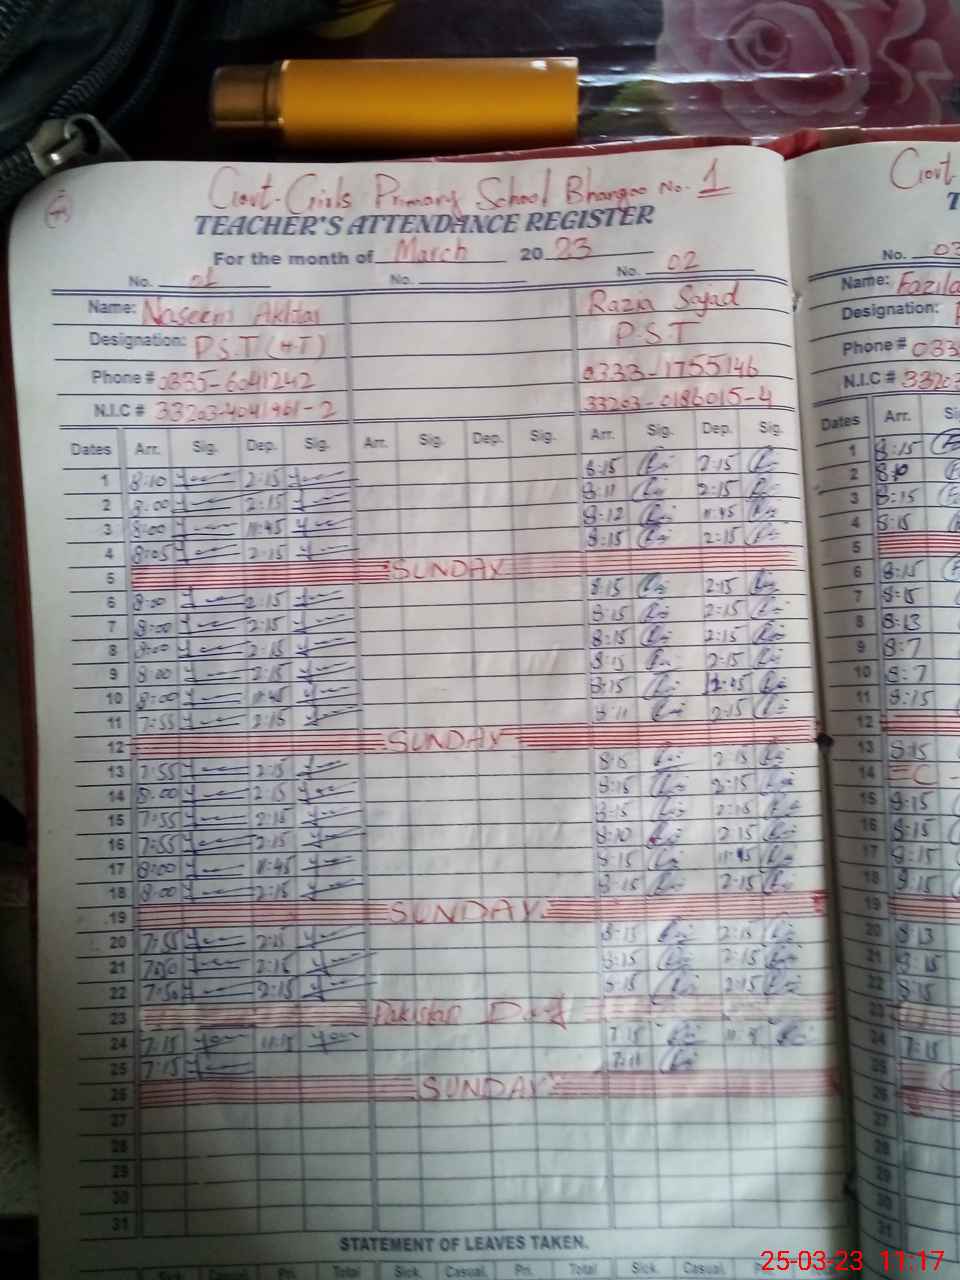 Govt. Girls Primary School Bhangoo No. 1
TEACHER'S ATTENDANCE REGISTER
For the month of March 2023
No. 01 No. No. 02
Name: Naseem Akhtar Razia Sajad
Designation: P.S.T (H.T) P.S.T
Phone # 0335-6041242 0333-1755146
N.I.C # 33203-4041961-2 33203-0186015-4
Dates Arr. Sig. Dep. Sig. Arr. Sig. Dep. Sig. Arr. Sig. Dep. Sig.
1 8:10 2:15 8:15 2:15
2 8:00 2:15 8:11 2:15
3 8:00 11:45 8:12 11:45
4 8:05 2:15 8:15 2:15
5 SUNDAY
6 8:00 2:15 8:15 2:15
7 8:00 2:15 8:15 2:15
8 8:00 2:15 8:15 2:15
9 8:00 2:15 8:13 2:15
10 8:00 11:45 8:15 :45
11 7:55 2:15 8:11 2:15
12 SUNDAY
13 7:55 2:15 8:15 2:15
14 8:00 2:15 8:15 2:15
15 7:55 2:15 8:15 2:15
16 7:55 2:15 8:10 2:15
17 8:00 11:45 8:15 11:45
18 8:00 2:15 8:15 2:15
19 SUNDAY
20 7:55 2:15 8:15 2:15
21 7:50 2:15 8:15 2:15
22 7:50 2:15 8:15 2:15
23 Pakistan Day
24 7:15 11:15 7:15
25 7:15 7:11
26 SUNDAY
27
28
29
30
31
STATEMENT OF LEAVES TAKEN.
Sick. Casual. Pri. Total Sick. Casual. Pri. Total
Govt
T
No. 03
Name: Fazila
Designation: P
Phone # 033
N.I.C # 33203
Dates Arr. Sig
1 8:15
2 8:10
3 8:15
4 8:15
5
6 8:15
7 8:15
8 8:13
9 8:7
10 8:7
11 8:15
12
13 8:15
14 C
15 8:15
16 8:15
17 8:15
18 8:15
19
20 8:13
21 8:15
22 8:15
23
24 7:15
25
26
27
28
29
30
31
25-03-23 11:17